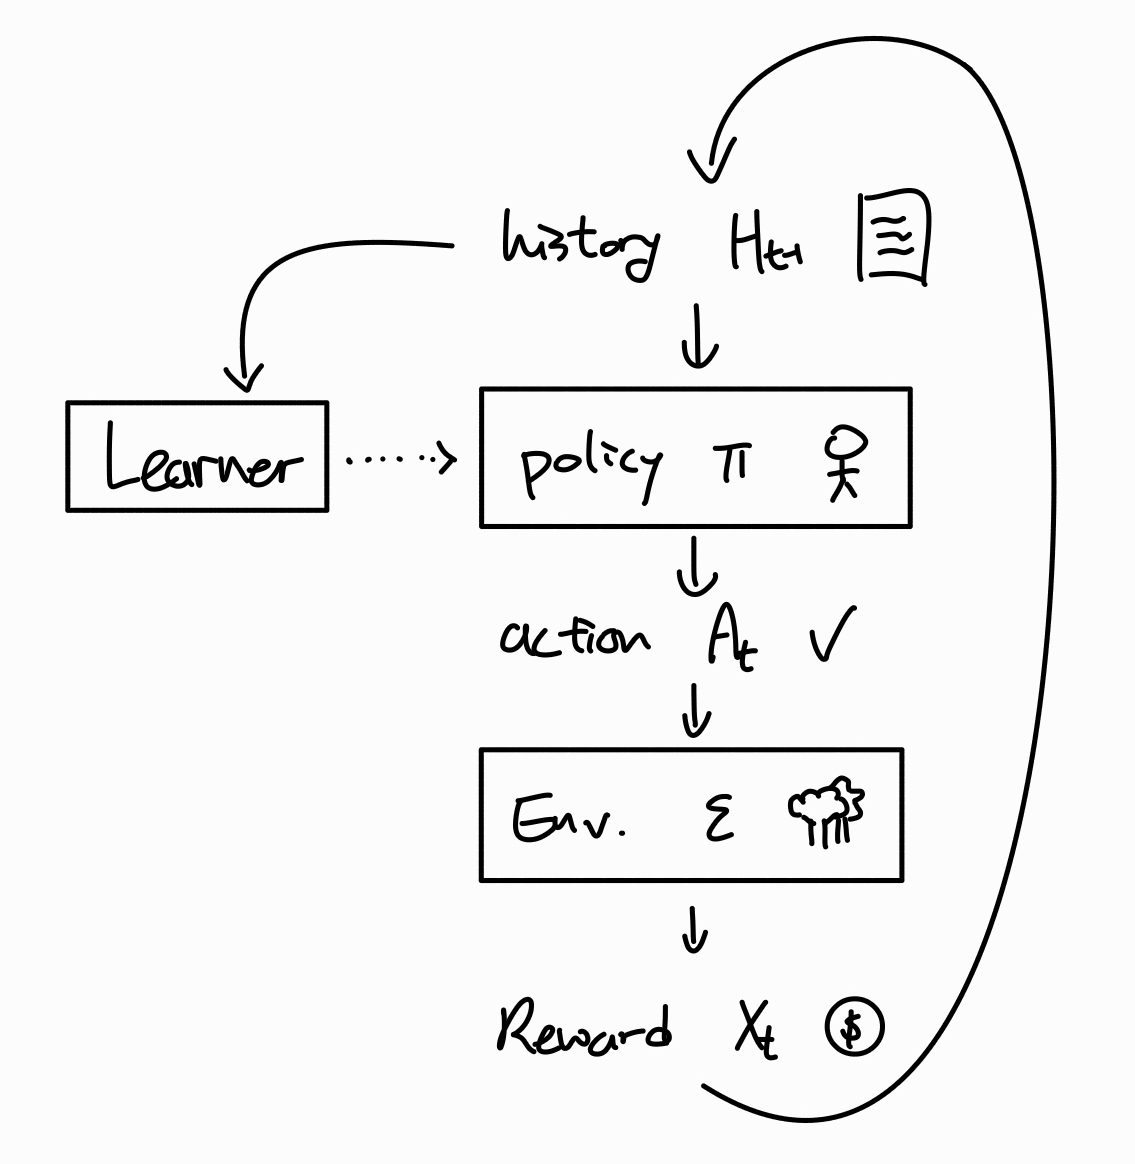 history H_{t-1}
Learner
policy π
action A_t
Env. ℰ
Reward X_t $